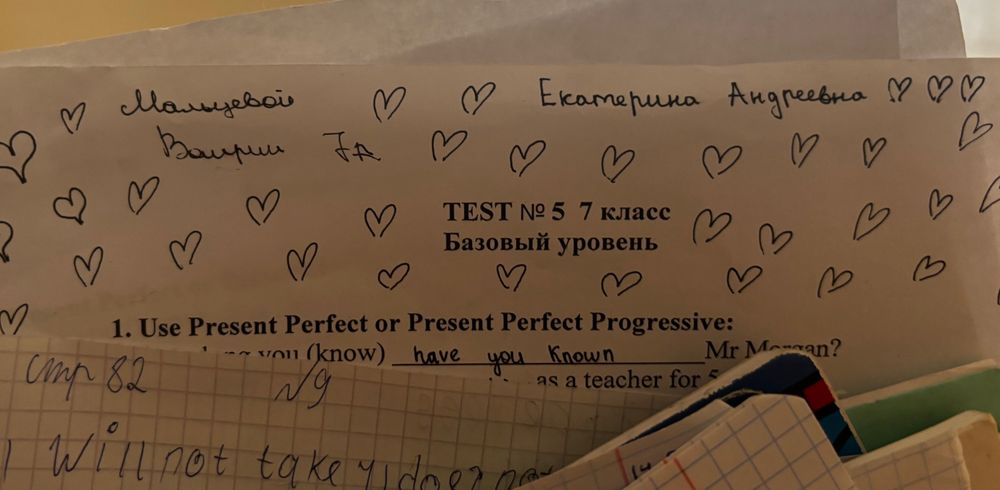 Мальцевой Екатерина Андреевна
Валерии 7А
TEST № 5 7 класс
Базовый уровень
1. Use Present Perfect or Present Perfect Progressive:
you (know) have you known Mr Morgan?
as a teacher for 5
стр 82 №9
I will not take